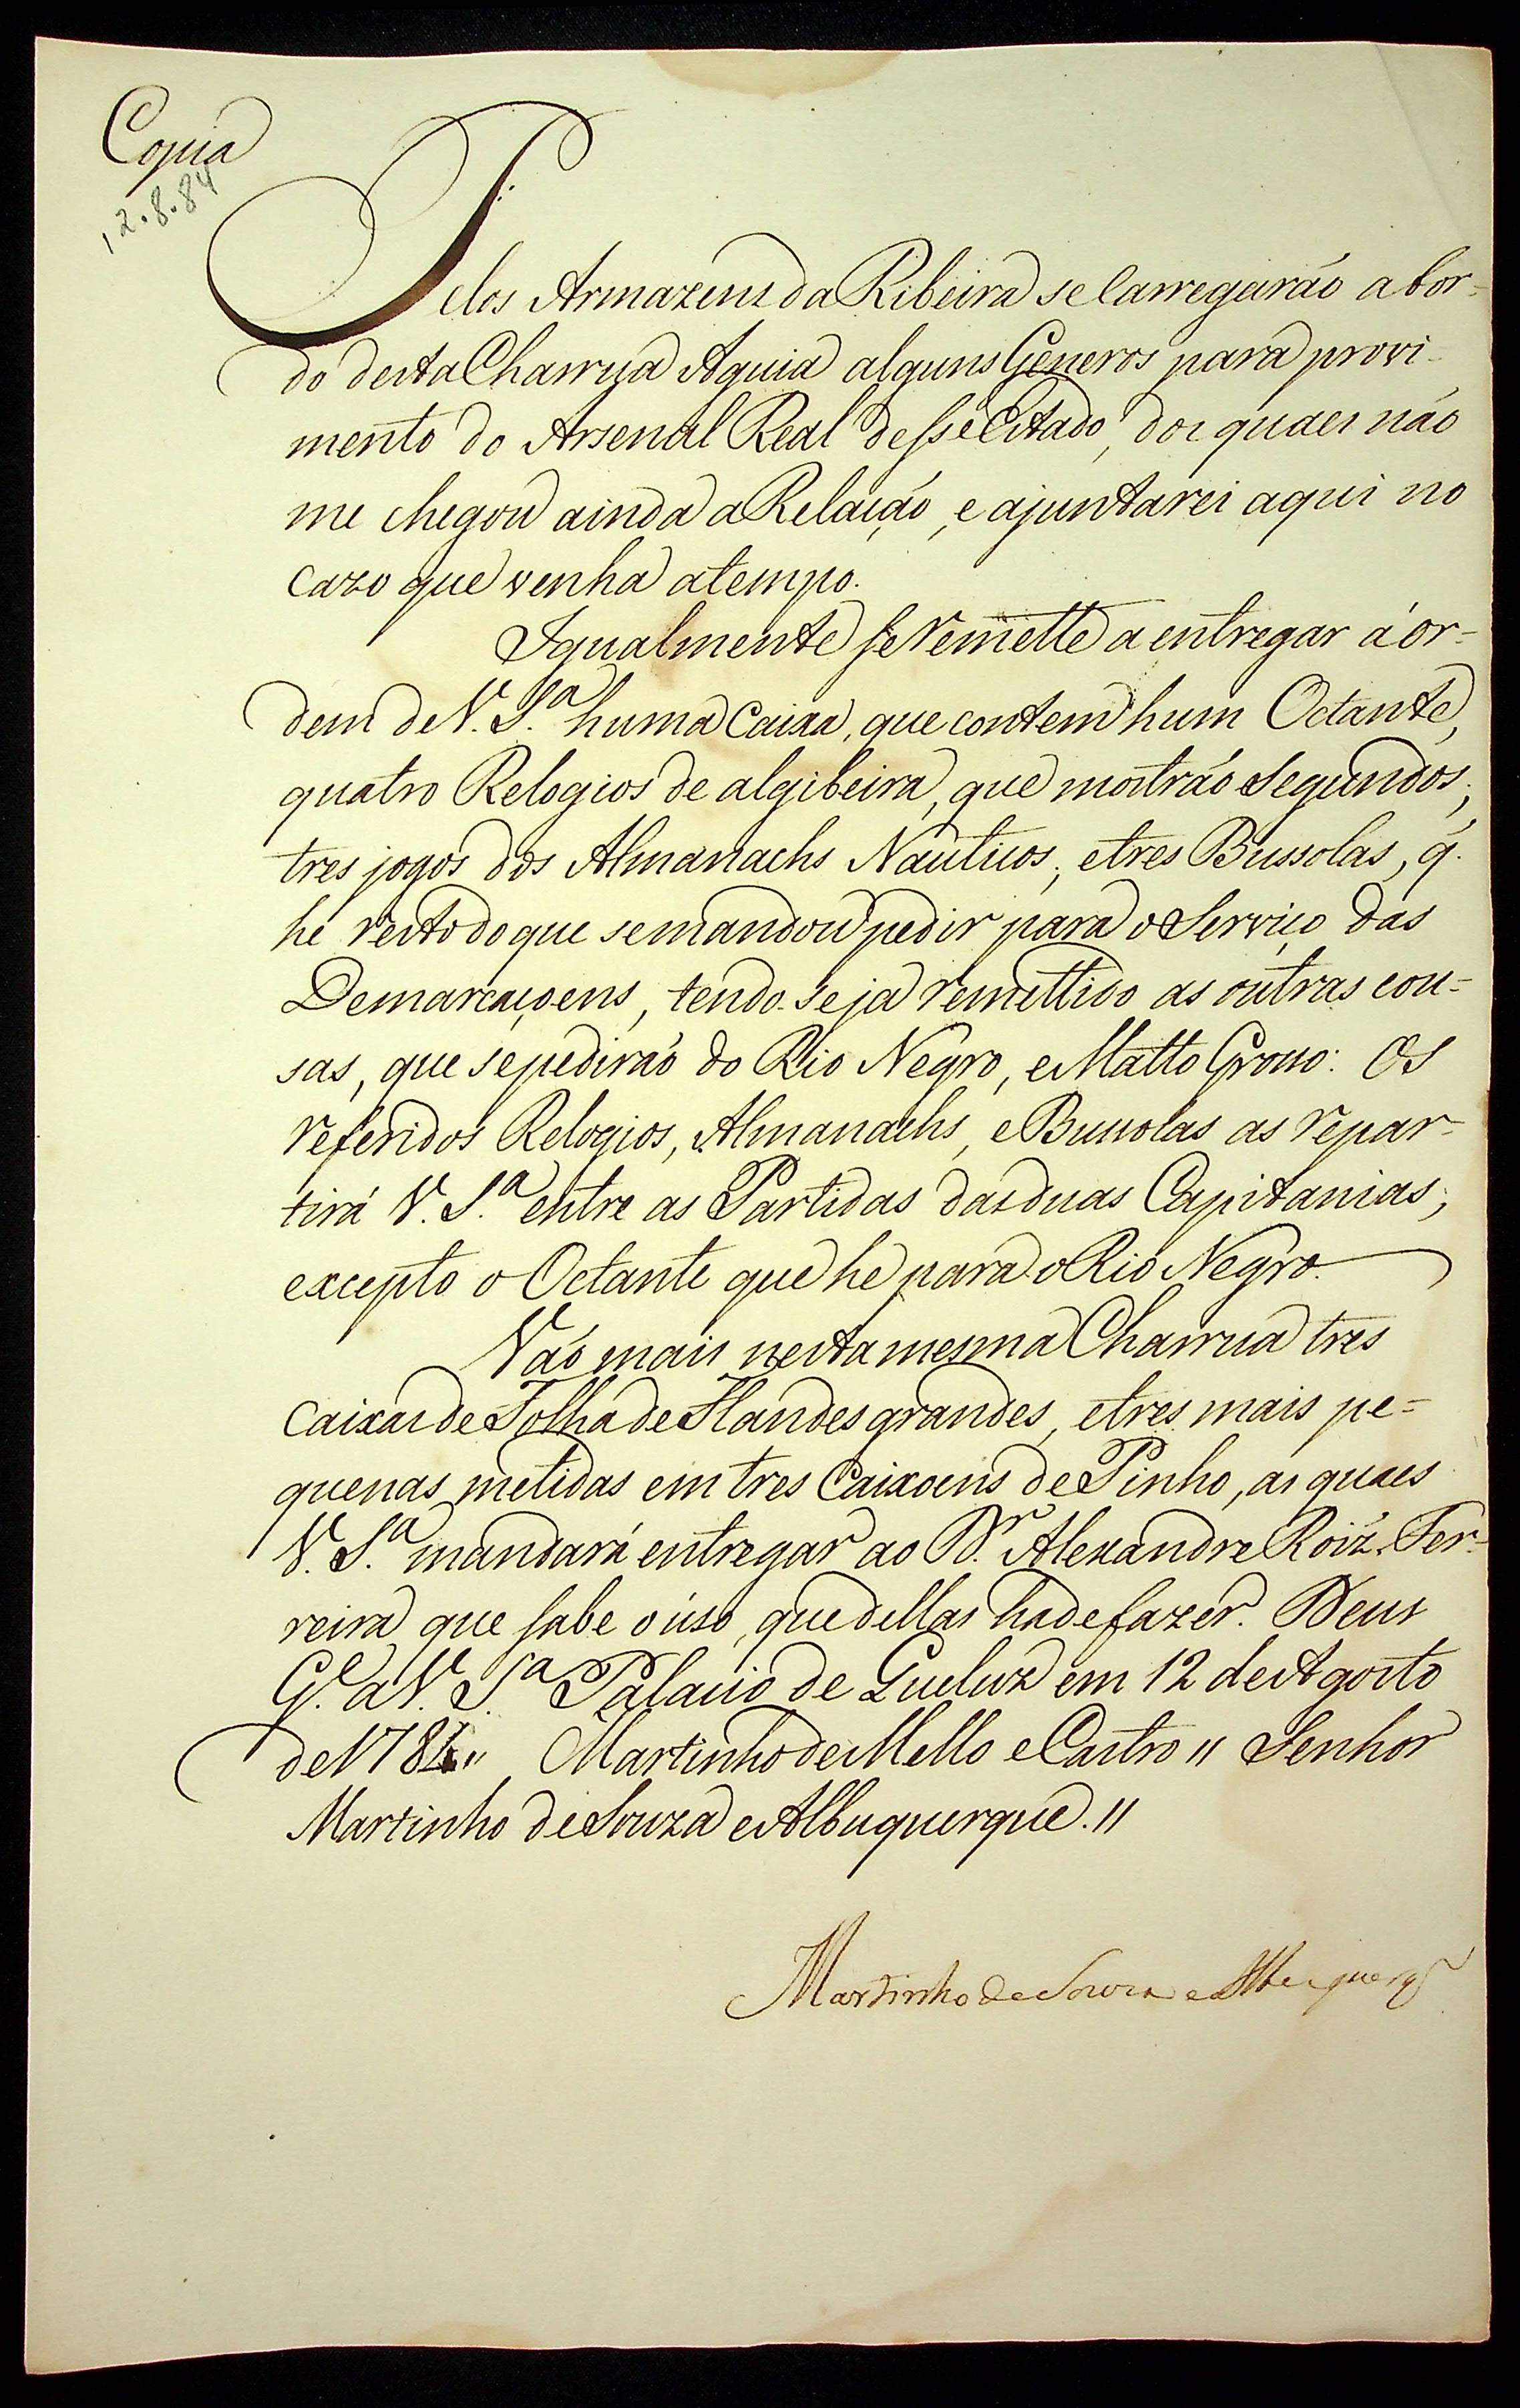 Copia
12.8.84
Pelos Armazens da Ribeira se Carregaráo a bor=
do desta Charrua Aguia alguns Generos para provi-
mento do Arsenal Real desse Estado, dos quaes náo
me chegou ainda a Relaçáo, e ajuntarei aqui no
cazo que venha a tempo.
Igualmente se remette a entregar á or=
dem de V. S.ª huma Caixa, que contem hum Octante,
quatro Relogios de algibeira, que mostráo Segundos;
tres jogos dos Almanachs Nauticos; e tres Bussolas, q.
he resto do que se mandou pedir para o Serviço das
Demarcaçoens, tendo-se já remettido as outras cou=
sas, que se pediráo do Rio Negro, e Matto Grosso: Os
referidos Relogios, Almanachs, e Bussolas as repar-
tirá V. S.ª entre as Partidas das duas Capitanias;
excepto o Octante que he para o Rio Negro.
Váo mais nesta mesma Charrua tres
Caixas de Folha de Flandes grandes, e tres mais pe=
quenas metidas em tres Caixoens de Pinho, as quaes
V. S.ª mandará entregar ao D.r Alexandre Roiz Fer-
reira que sabe o úso, que dellas ha de fazer. Deus
G.e a V. S.ª Palacio de Queluz em 12 de Agosto
de 1784 " Martinho de Mello e Castro " Senhor
Martinho de Souza e Albuquerque. "
Martinho de Souza e Albuquerq